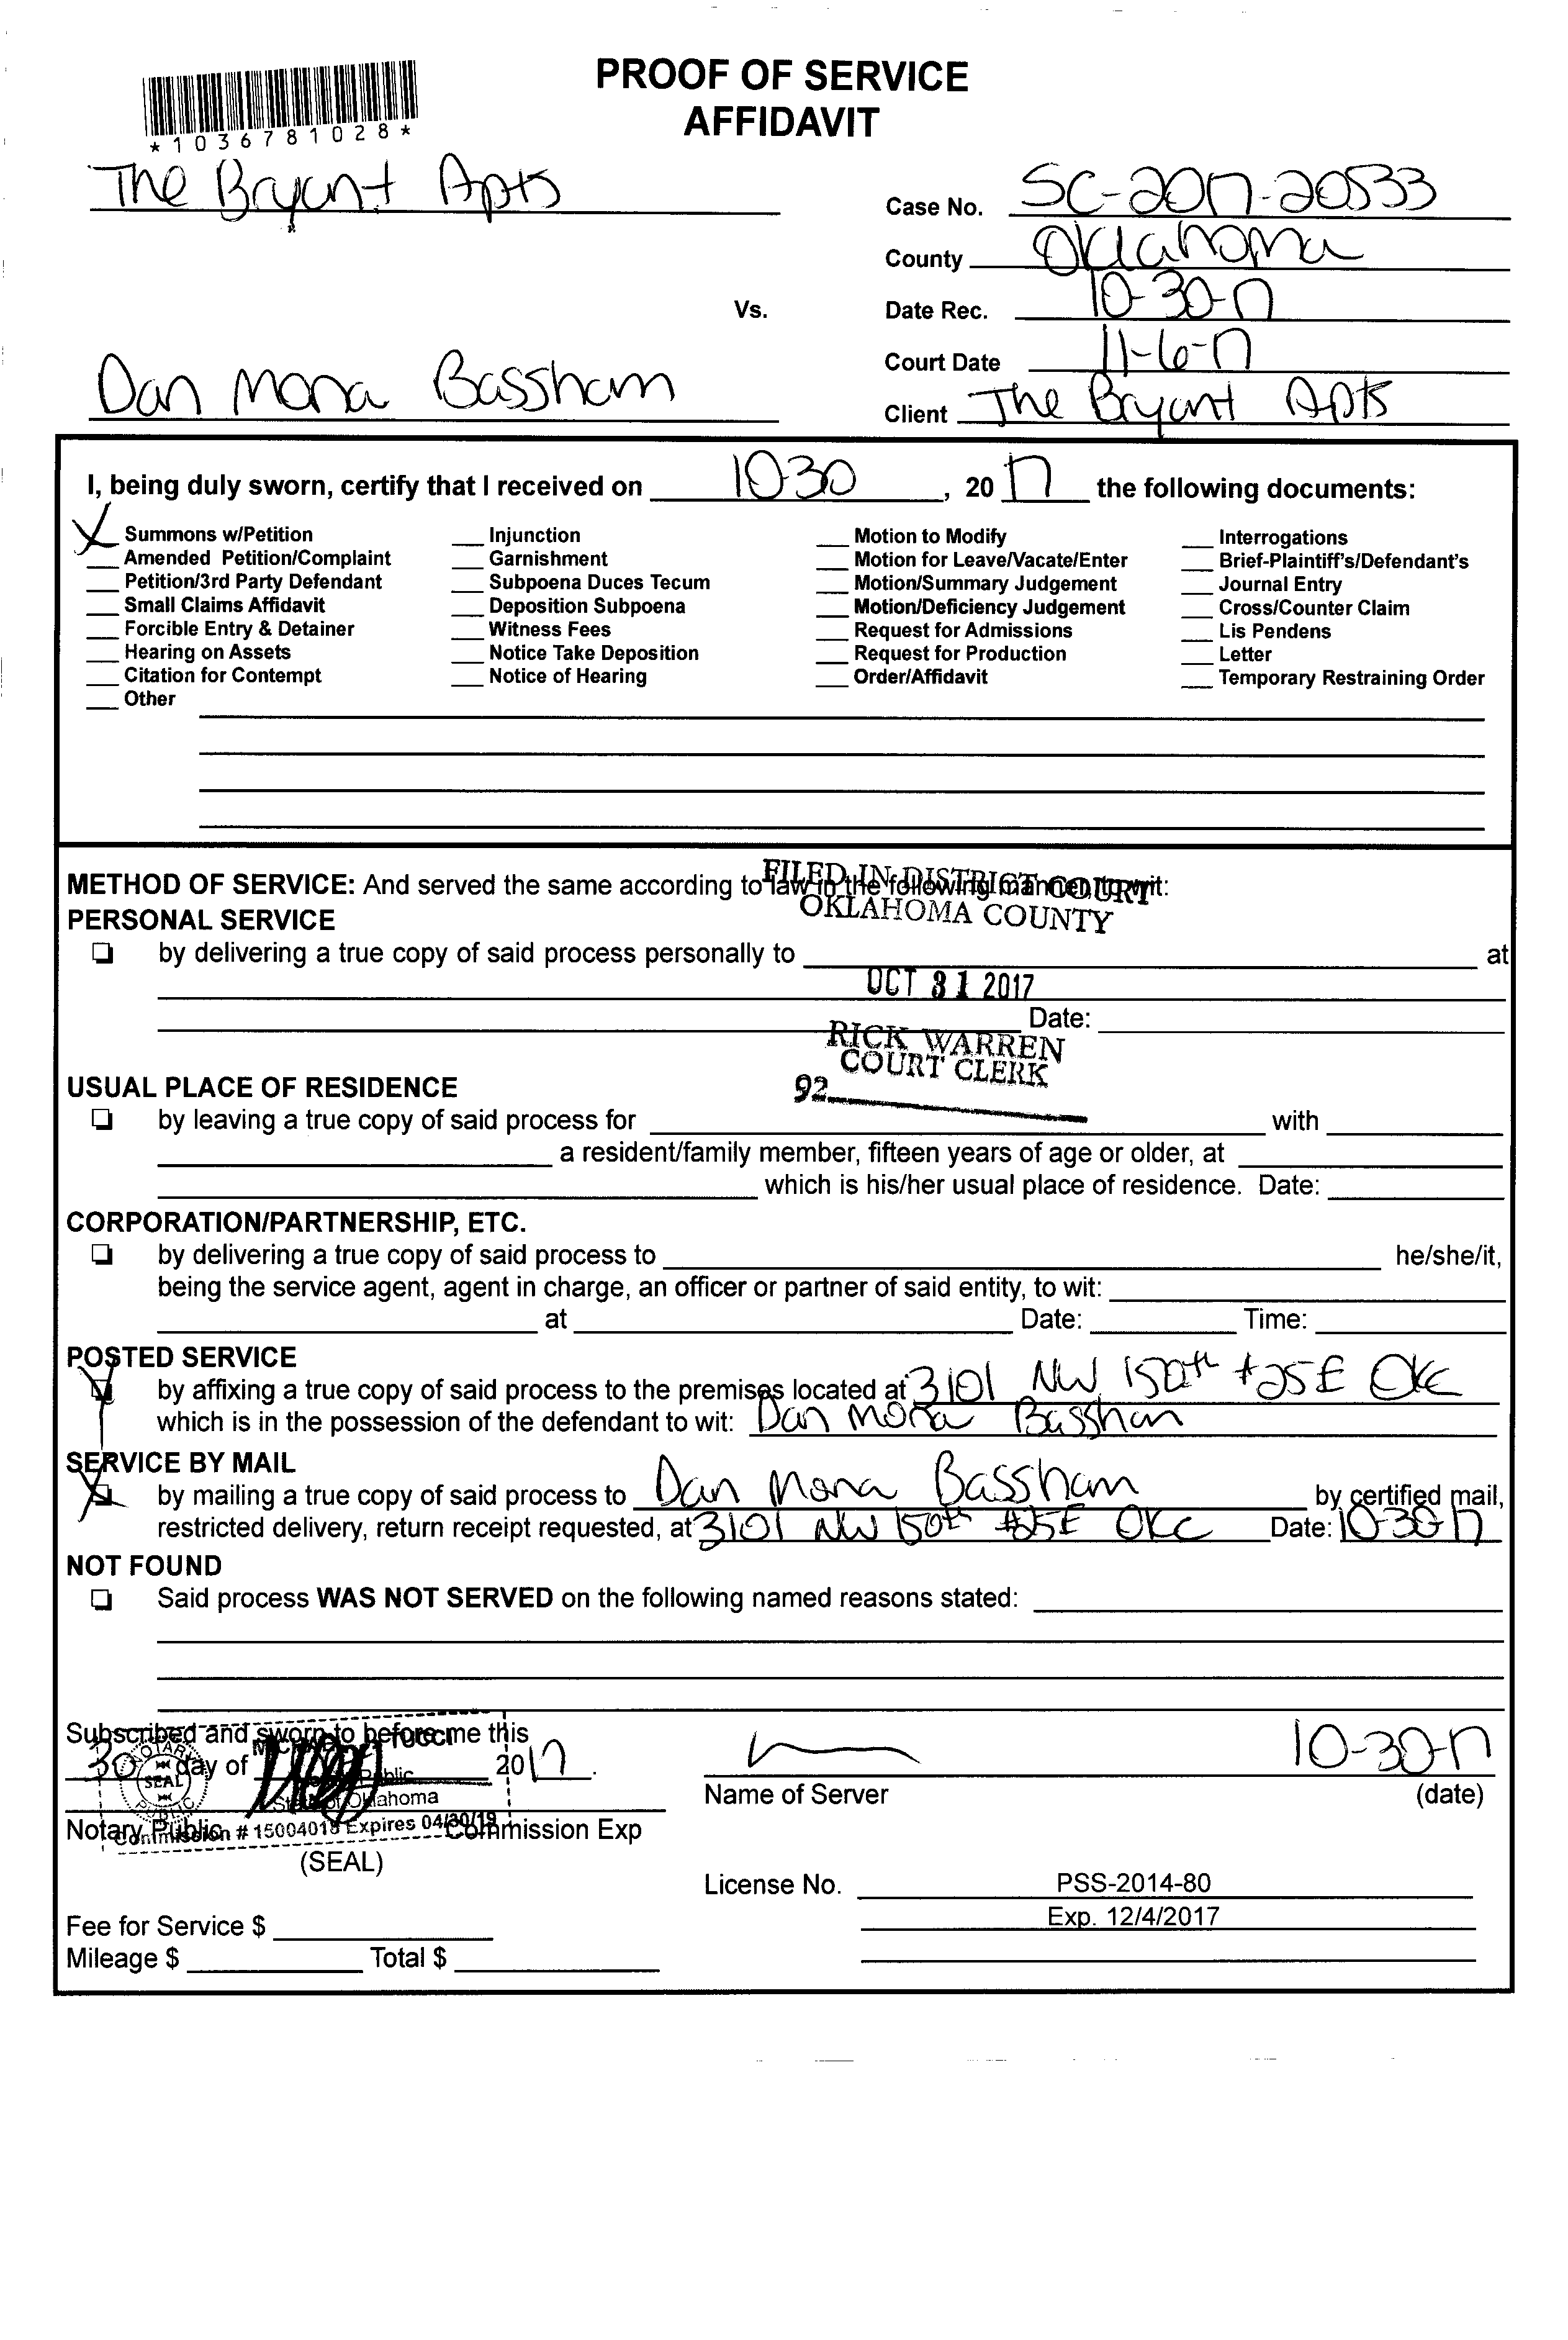 PROOF OF SERVICE
AFFIDAVIT
*1036781028*
The Bryant Apts
Case No. SC-2017-20533
County Oklahoma
Vs.
Date Rec. 10-30-17
Court Date 11-6-17
Dan Mona Bassham
Client The Bryant Apts
I, being duly sworn, certify that I received on 10-30, 20 17 the following documents:
X Summons w/Petition
Amended Petition/Complaint
Petition/3rd Party Defendant
Small Claims Affidavit
Forcible Entry & Detainer
Hearing on Assets
Citation for Contempt
Other
Injunction
Garnishment
Subpoena Duces Tecum
Deposition Subpoena
Witness Fees
Notice Take Deposition
Notice of Hearing
Motion to Modify
Motion for Leave/Vacate/Enter
Motion/Summary Judgement
Motion/Deficiency Judgement
Request for Admissions
Request for Production
Order/Affidavit
Interrogations
Brief-Plaintiff's/Defendant's
Journal Entry
Cross/Counter Claim
Lis Pendens
Letter
Temporary Restraining Order
METHOD OF SERVICE: And served the same according to law in the following manner, to wit:
FILED IN DISTRICT COURT
OKLAHOMA COUNTY
PERSONAL SERVICE
by delivering a true copy of said process personally to at
OCT 31 2017
Date:
RICK WARREN
COURT CLERK
92
USUAL PLACE OF RESIDENCE
by leaving a true copy of said process for with
a resident/family member, fifteen years of age or older, at
which is his/her usual place of residence. Date:
CORPORATION/PARTNERSHIP, ETC.
by delivering a true copy of said process to he/she/it,
being the service agent, agent in charge, an officer or partner of said entity, to wit:
at Date: Time:
POSTED SERVICE
by affixing a true copy of said process to the premises located at 3101 NW 150th #25E OKC
which is in the possession of the defendant to wit: Dan Mona Bassham
SERVICE BY MAIL
by mailing a true copy of said process to Dan Mona Bassham by certified mail,
restricted delivery, return receipt requested, at 3101 NW 150th #25E OKC Date: 10-30-17
NOT FOUND
Said process WAS NOT SERVED on the following named reasons stated:
Subscribed and sworn to before me this
30 day of 2017.
Tucci
NOTARY PUBLIC SEAL
Notary Public
State of Oklahoma
Commission # 15004018 Expires 04/30/19
Notary Public Commission Exp
(SEAL)
10-30-17
Name of Server (date)
License No. PSS-2014-80
Exp. 12/4/2017
Fee for Service $
Mileage $ Total $